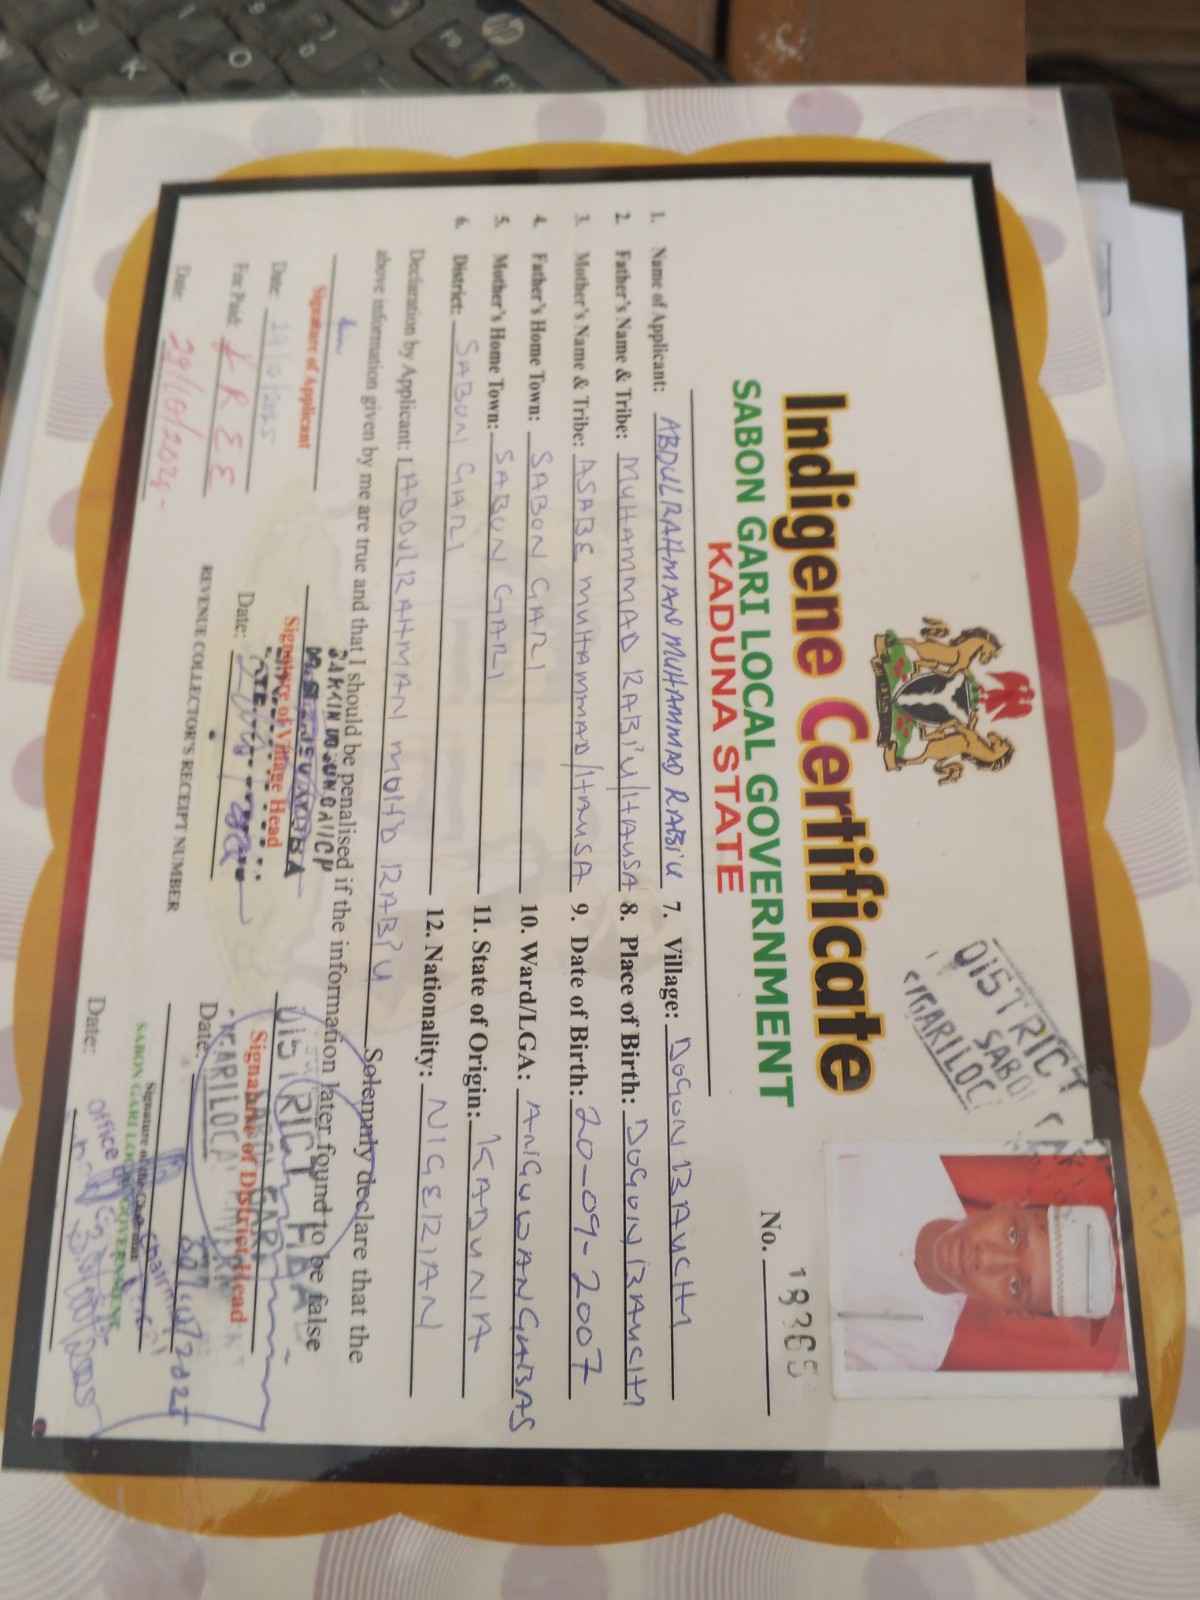 Indigene Certificate
SABON GARI LOCAL GOVERNMENT
KADUNA STATE
DISTRICT
SABO
GARI LOC
No. 18365
1. Name of Applicant: ABDULRAHMAN MUHAMMAD RABI'U
2. Father's Name & Tribe: MUHAMMAD RABI'U/HAUSA
3. Mother's Name & Tribe: ASABE MUHAMMAD/HAUSA
4. Father's Home Town: SABON GARI
5. Mother's Home Town: SABON GARI
6. District: SABON GARI
7. Village: DOGON BAUCHI
8. Place of Birth: DOGON BAUCHI
9. Date of Birth: 20-09-2007
10. Ward/LGA: ANGUWAN GABAS
11. State of Origin: KADUNA
12. Nationality: NIGERIAN
Declaration by Applicant: I ABDULRAHMAN MOH'D RABI'U Solemnly declare that the
above information given by me are true and that I should be penalised if the information later found to be false
Signature of Applicant
Date:
Fee Paid: FREE
Date:
Signature of Village Head
Date:
REVENUE COLLECTOR'S RECEIPT NUMBER
DISTRICT HEAD
Signature of District Head
Date:
Signature of the Chairman
SABON GARI LOCAL GOVERNMENT
Date: